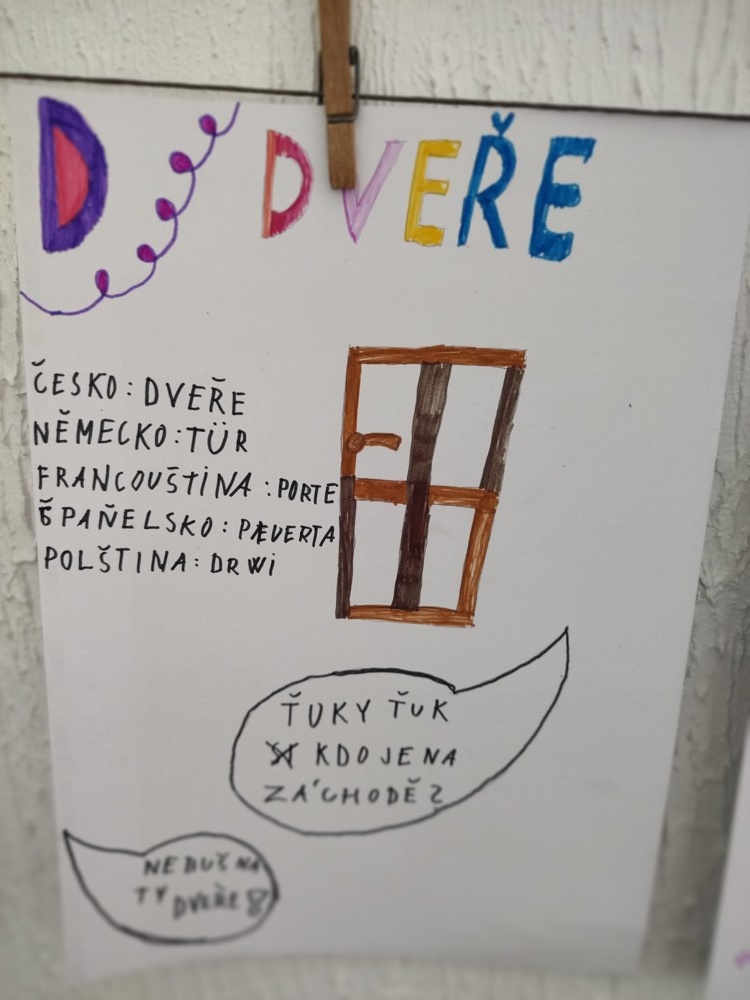 D DVEŘE
ČESKO: DVEŘE
NĚMECKO: TÜR
FRANCOUŠTINA: PORTE
ŠPAŇELSKO: PUERTA
POLŠTINA: DRWI
ŤUKY ŤUK
KDO JE NA
ZÁCHODĚ?
NEBUŠ NA
TY DVEŘE!